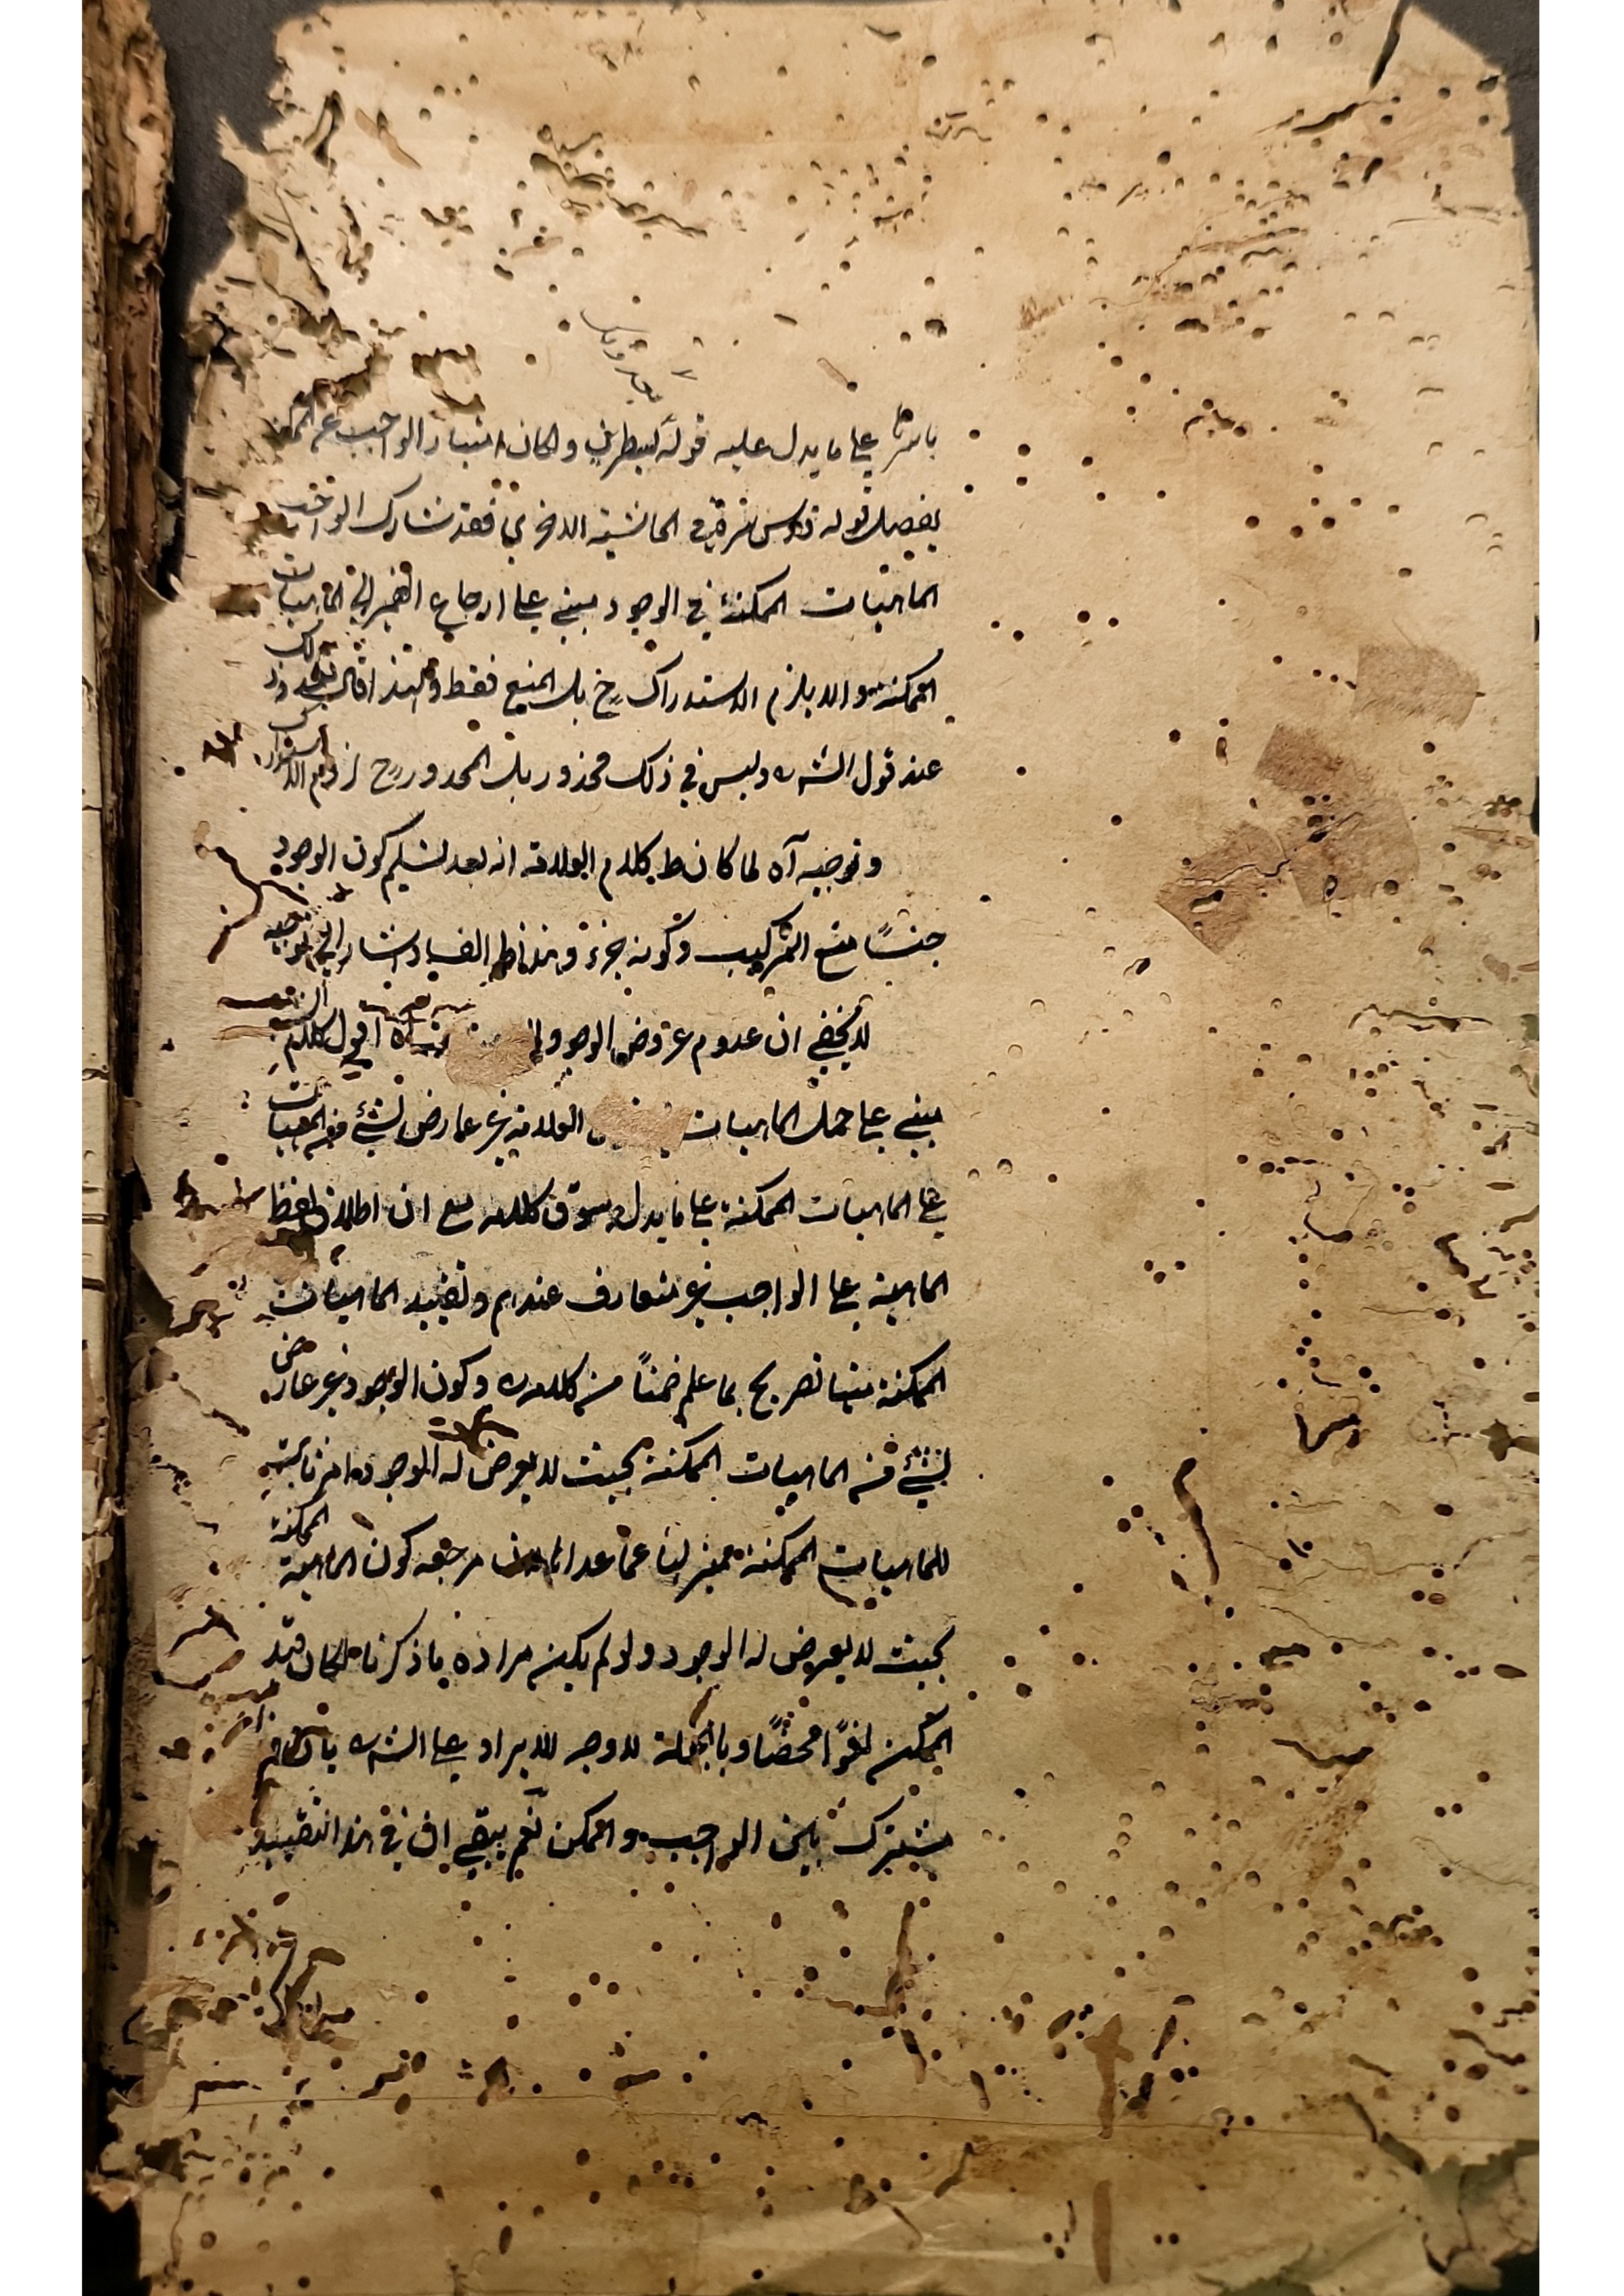 باسرها علي ما يدل عليه قوله ليطرف والكان امتياز الواجب عن الممكن
بفصل قوله قدس سره في الحاشية الاخري فقد شارك الواجب
الماهيات الممكنة في الوجود مبني علي ارجاع الضمير الي الماهيات
الممكنة والا يلزم الاستدراك ح بل المنع فقط ولهذا قال
عند قول الش ره وليس في ذلك محذور بل المحذور ح لزوم الاستدراك
وتوجيه آه لما كان ظ كلام العلامة انه بعد تسليم كون الوجود
جنسًا منع التركيب وكونه جزء وهذا ظ الفساد اشار الي توجيه
لا يخفي ان عدم عروض الوجود آه اقول كلام
مبني علي حمل الماهيات العلامة غير عارض لشئ من الماهيات
علي الماهيات الممكنة علي ما يدل سوق كلامه مع ان اطلاق لفظ
الماهية علي الواجب غير متعارف عندهم وتقييد الماهيات
الممكنة منها تصريح بما علم ضمنًا من كلامه ره وكون الوجود غير عارض
لشئ من الماهيات الممكنة بحيث لا يعرض له الوجود امر ثابت
للماهيات الممكنة مميز لها عما عداها لان مرجعه كون الماهية الممكنة
بحيث لا يعرض له الوجود ولو لم يكن مراده ما ذكرنا لكان قيد
الممكن لغوًا محضًا وبالجملة لا وجه للايراد علي الش ره بان
مشترك بين الواجب والممكن نعم يبقي ان في هذا التقييد